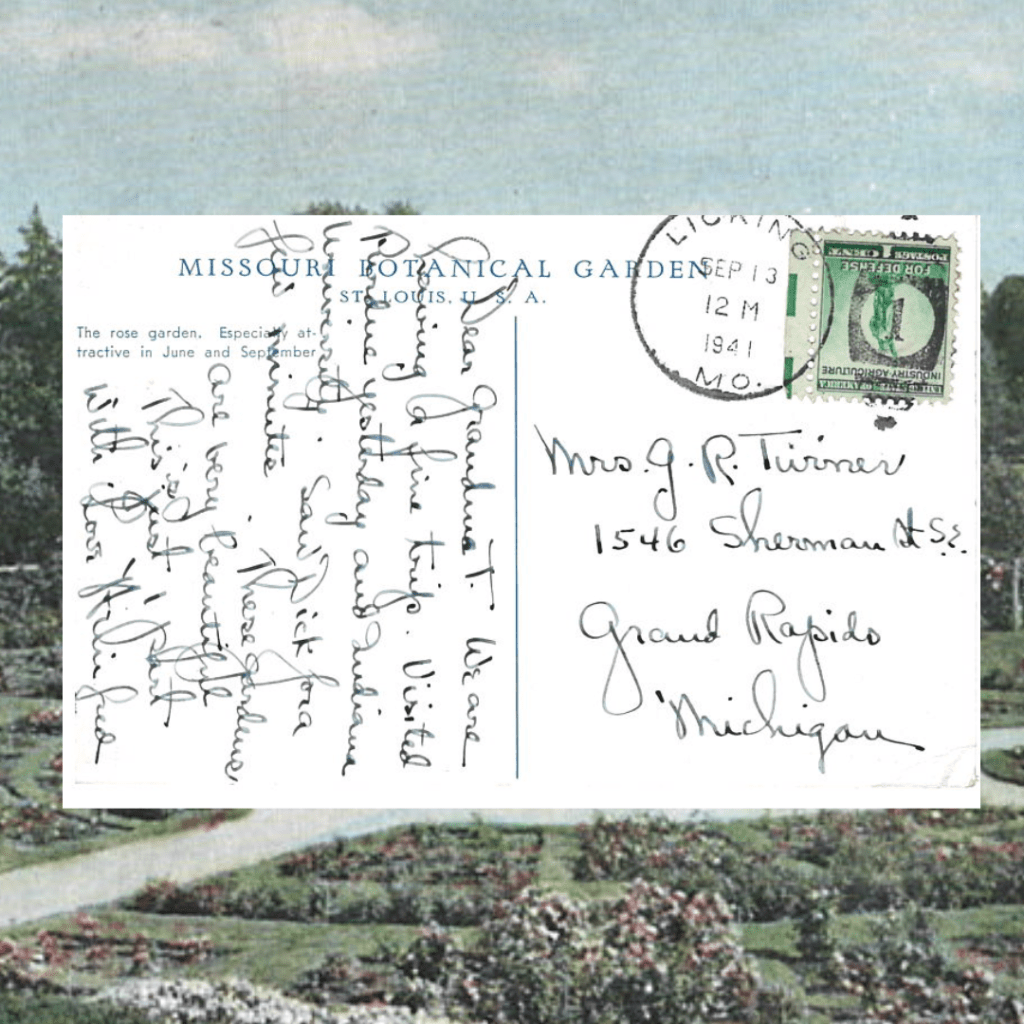 MISSOURI BOTANICAL GARDEN
ST. LOUIS, U. S. A.
The rose garden. Especially at-
tractive in June and September
Dear Grandma T. We are
having a fine trip. Visited
Purdue yesterday and Indiana
University. Saw Dick for a
few minutes. These gardens
are very beautiful
This is just
With love
LICKING
SEP 13
12 M
1941
MO.
UNITED STATES OF AMERICA
INDUSTRY AGRICULTURE
FOR DEFENSE
1 CENT 1
POSTAGE
Mrs. G. R. Turner
1546 Sherman St S.E.
Grand Rapids
Michigan